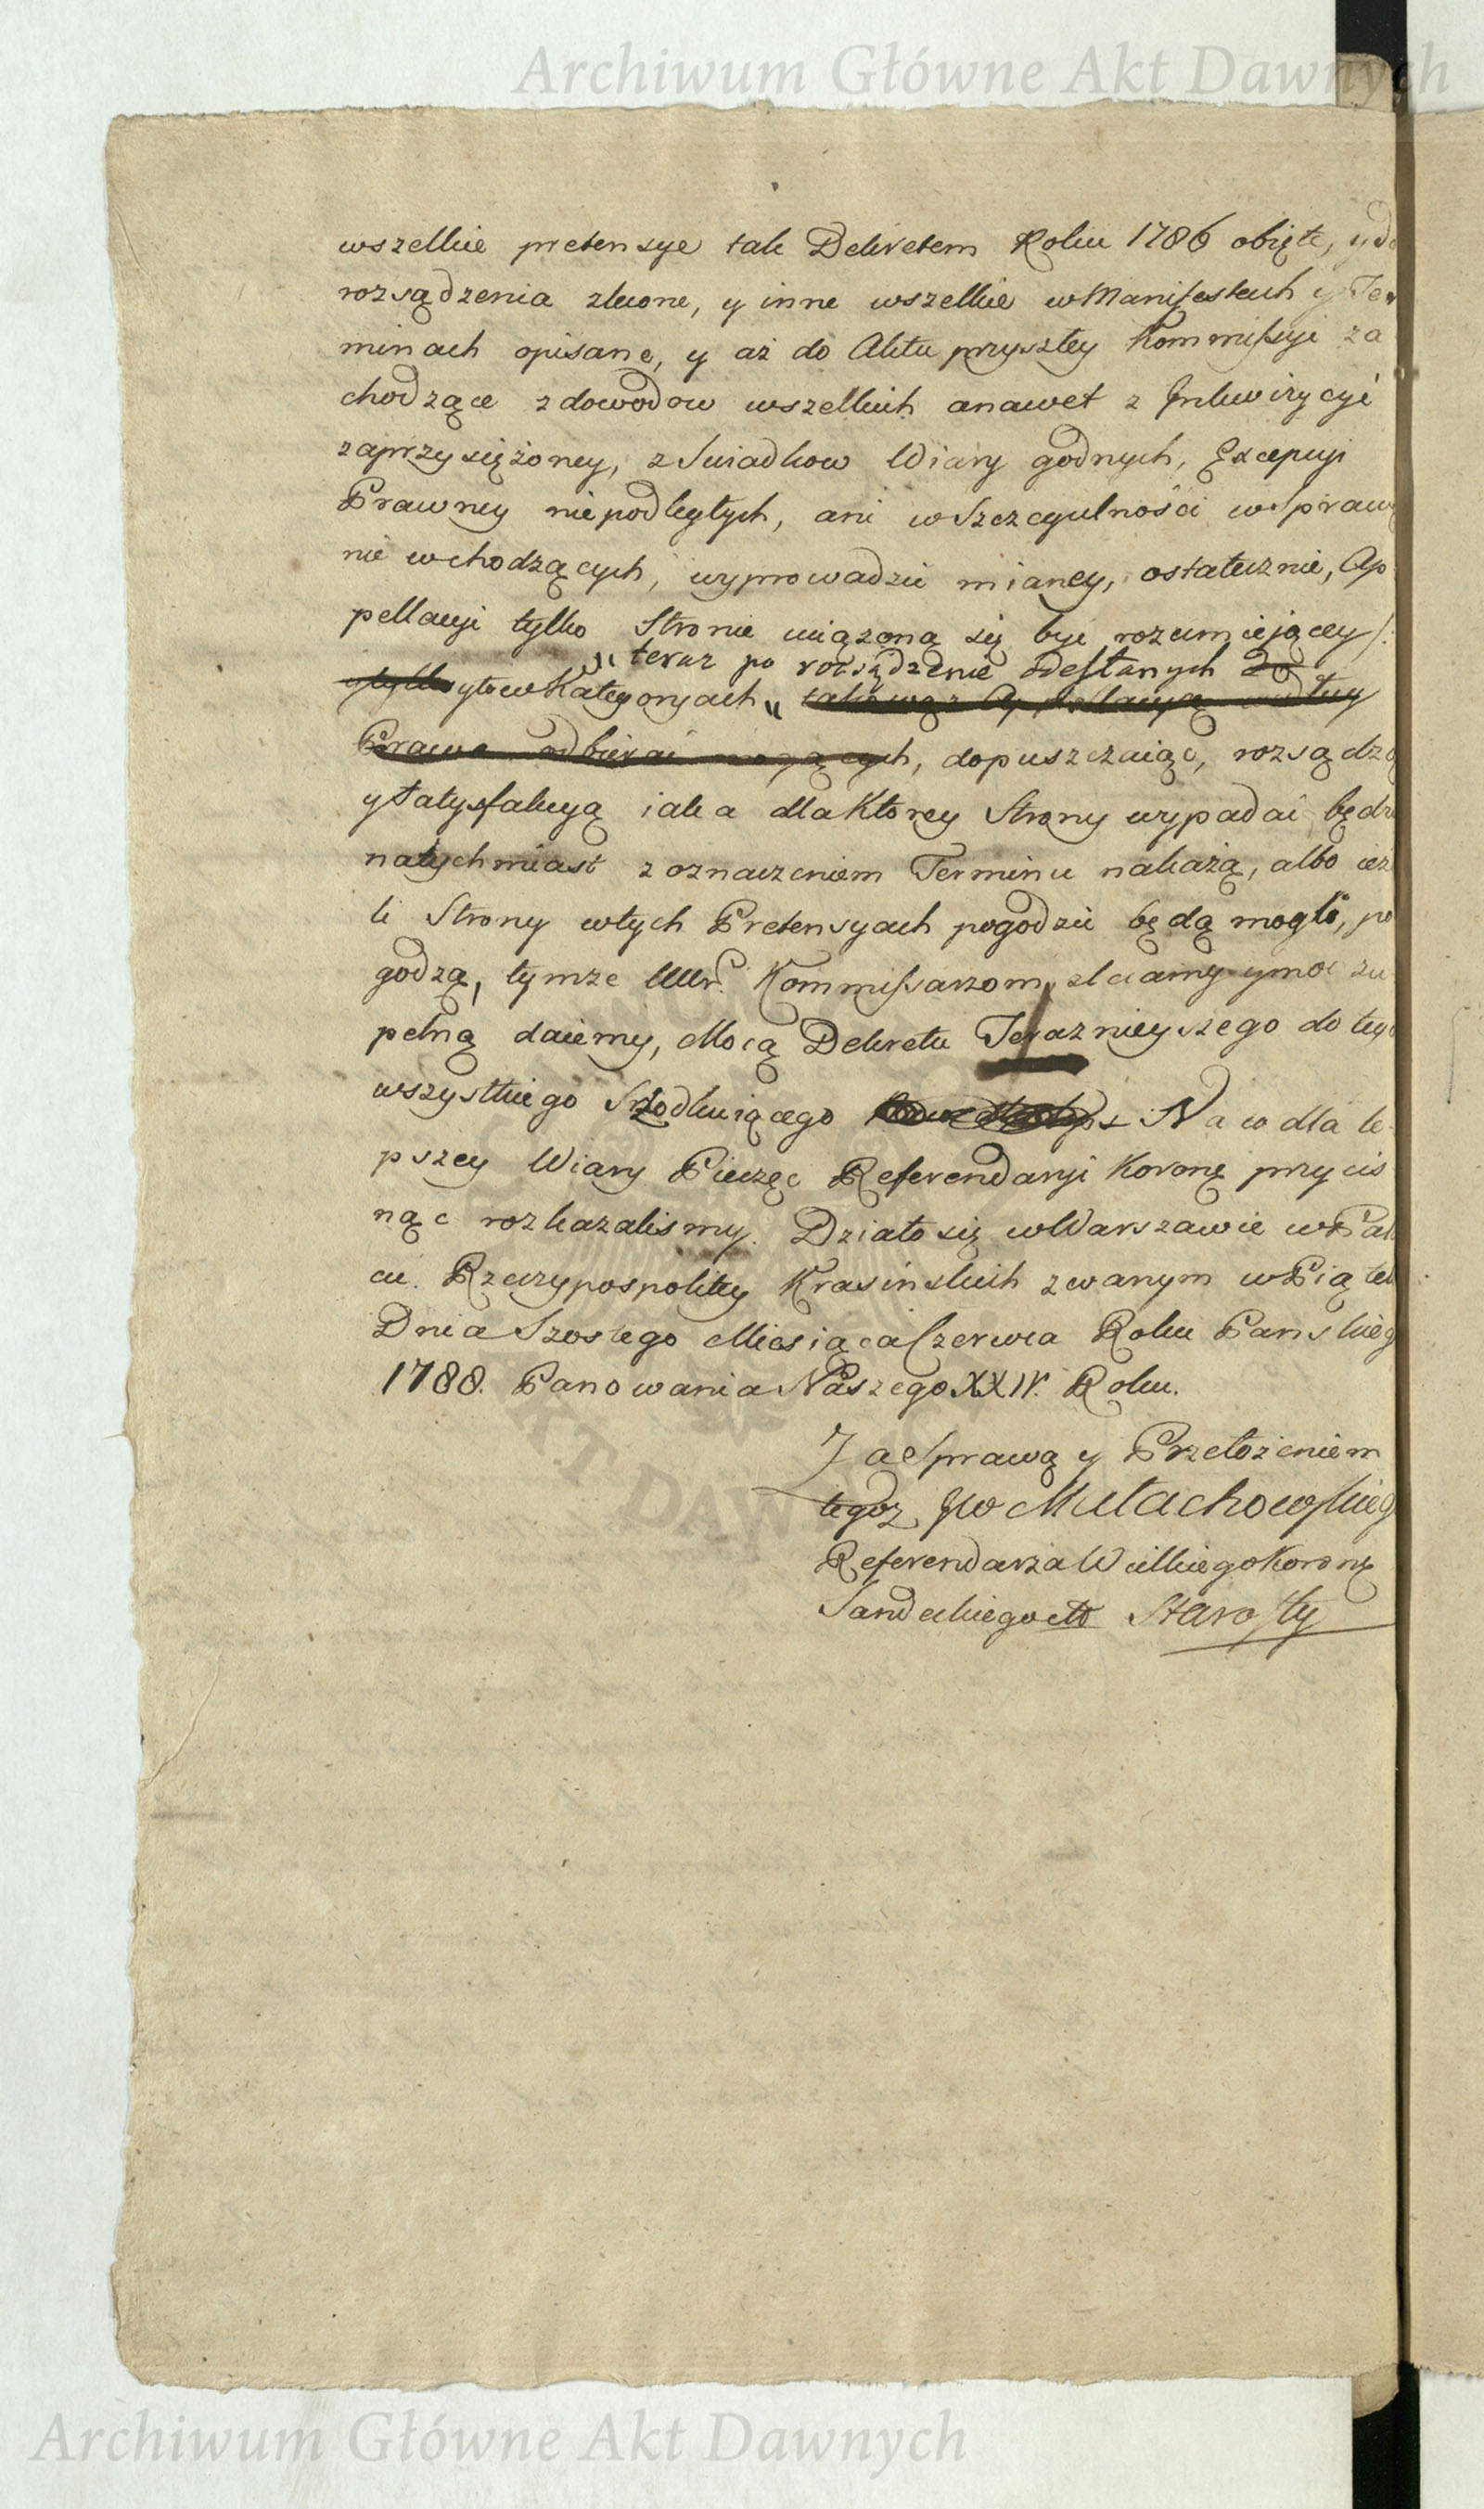 Archiwum Główne Akt Dawnych
wszelkie pretensye tak Dekretem Roku 1786 obięte, y do
rozsądzenia zlecone, y inne wszelkie w Manifestach y Ter
minach opisane, y aż do Aktu przyszłey Kommissyi za
chodzące z dowodow wszelkich a nawet z Inkwizycyi
zaprzysiężoney, z Swiadkow Wiary godnych, Excepcyi
Prawney niepodległych, ani w Szczegulności w Sprawę
nie wchodzących, wyprowadzić mianey, ostatecznie, Ap
pellacyi tylko Stronie uciążoną się być rozumiejącey
teraz po rozsądzenie odesłanych
y to w Kategoryach takowąż Appellacyą
Prawa odbierać mogących, dopuszczaiąc, rozsądzą
y Satysfakcyą iaka dla Ktorey Strony wypadać będzie
natychmiast z oznaczeniem Terminu nakażą, albo ieże
li Strony w tych Pretensyach pogodzić będą mogli, po
godzą, tymże Kommissarzom zlecamy y moc zu
pełną daiemy, Mocą Dekretu Teraznieyszego do tego
wszystkiego Srzodkuiącego Na co dla le-
pszey Wiary Pieczęć Referendaryi Koronę przycis
nąc rozkazalismy. Działo się w Warszawie w Pała
cu Rzeczypospolitey Krasińskich zwanym w Piątek
Dnia Szostego Miesiąca Czerwca Roku Panskiego
1788. Panowania Naszego XXIV. Roku.
Za Sprawą y Przełożeniem
tegoż JW Małachowskiego
Referendarza Wielkiego Koronę
Sandeckiego Starosty
Archiwum Główne Akt Dawnych